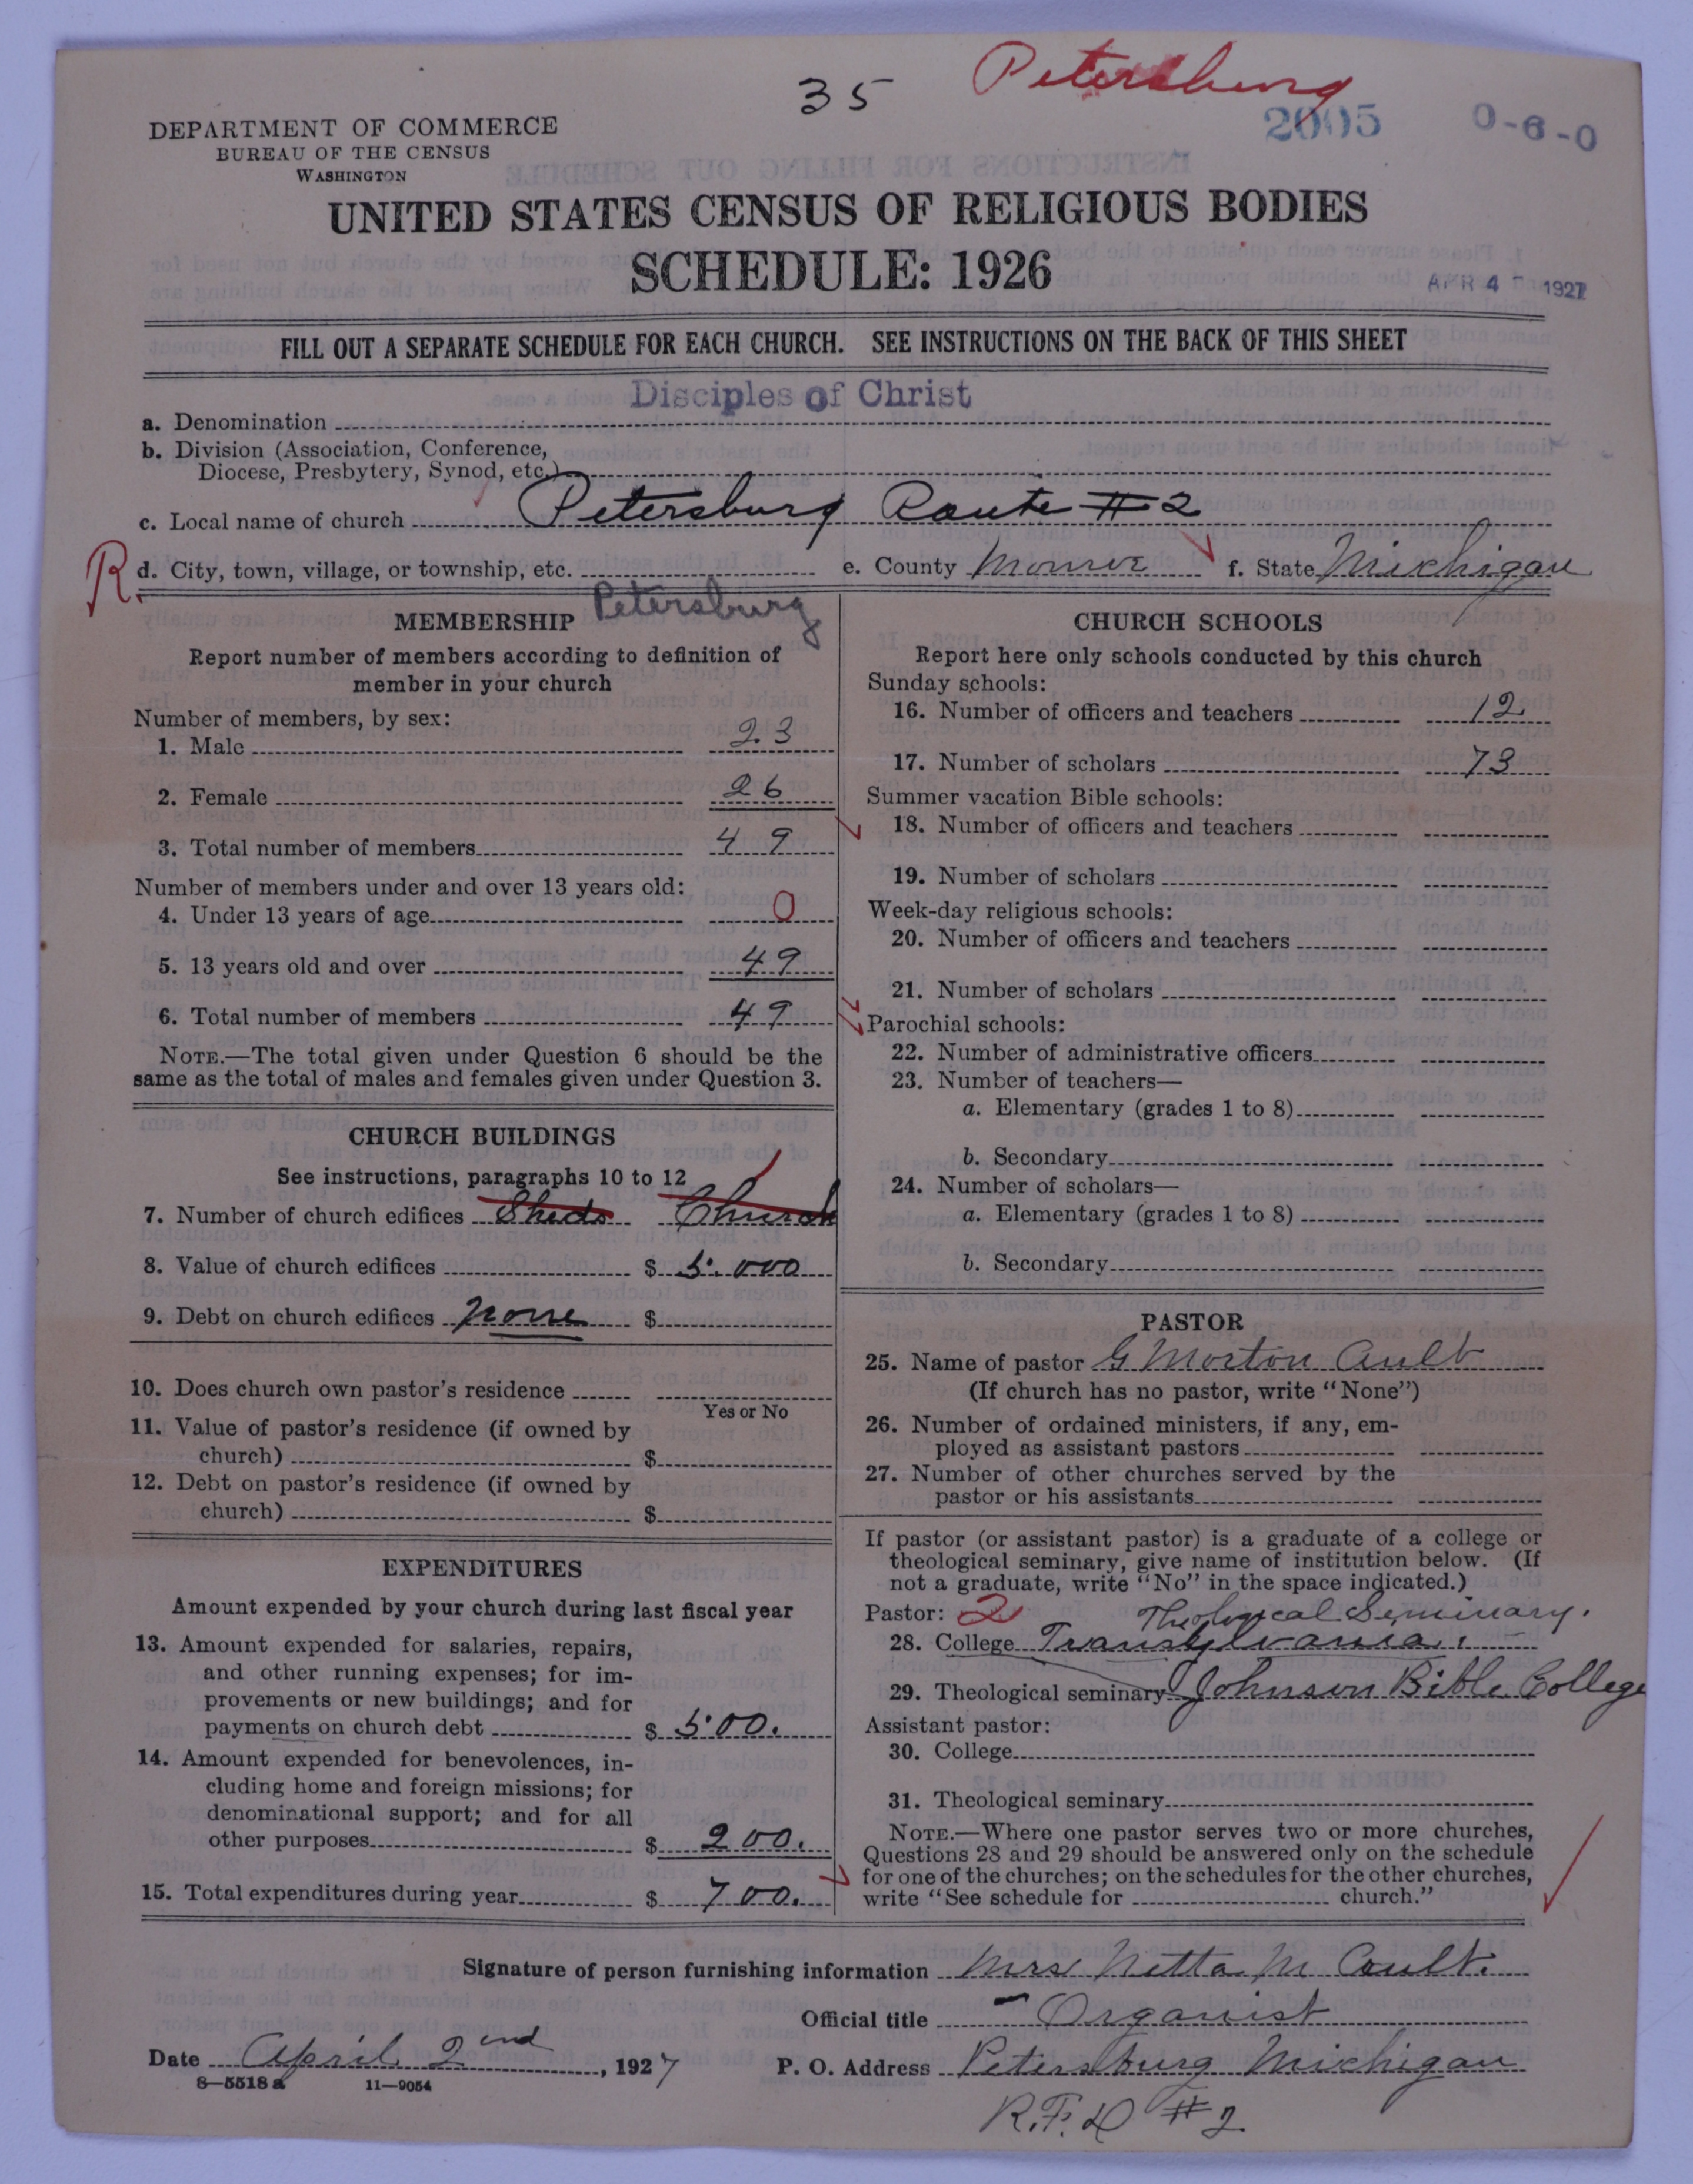 35 Petersburg
2005 0-6-0
DEPARTMENT OF COMMERCE
BUREAU OF THE CENSUS
WASHINGTON
UNITED STATES CENSUS OF RELIGIOUS BODIES
SCHEDULE: 1926
APR 4 1927
FILL OUT A SEPARATE SCHEDULE FOR EACH CHURCH. SEE INSTRUCTIONS ON THE BACK OF THIS SHEET
Disciples of Christ
a. Denomination
b. Division (Association, Conference,
Diocese, Presbytery, Synod, etc.)
c. Local name of church Petersburg Route #2
R d. City, town, village, or township, etc. e. County Monroe f. State Michigan
Petersburg
MEMBERSHIP
Report number of members according to definition of
member in your church
Number of members, by sex:
1. Male 23
2. Female 26
3. Total number of members 49
Number of members under and over 13 years old:
4. Under 13 years of age 0
5. 13 years old and over 49
6. Total number of members 49
NOTE.—The total given under Question 6 should be the
same as the total of males and females given under Question 3.
CHURCH BUILDINGS
See instructions, paragraphs 10 to 12
7. Number of church edifices Sheds Church
8. Value of church edifices $ 5.000
9. Debt on church edifices none $
10. Does church own pastor's residence
Yes or No
11. Value of pastor's residence (if owned by
church) $
12. Debt on pastor's residence (if owned by
church) $
EXPENDITURES
Amount expended by your church during last fiscal year
13. Amount expended for salaries, repairs,
and other running expenses; for im-
provements or new buildings; and for
payments on church debt $ 500.
14. Amount expended for benevolences, in-
cluding home and foreign missions; for
denominational support; and for all
other purposes $ 200.
15. Total expenditures during year $ 700.
CHURCH SCHOOLS
Report here only schools conducted by this church
Sunday schools:
16. Number of officers and teachers 12
17. Number of scholars 73
Summer vacation Bible schools:
18. Number of officers and teachers
19. Number of scholars
Week-day religious schools:
20. Number of officers and teachers
21. Number of scholars
Parochial schools:
22. Number of administrative officers
23. Number of teachers—
a. Elementary (grades 1 to 8)
b. Secondary
24. Number of scholars—
a. Elementary (grades 1 to 8)
b. Secondary
PASTOR
25. Name of pastor G Morton Ault
(If church has no pastor, write "None")
26. Number of ordained ministers, if any, em-
ployed as assistant pastors
27. Number of other churches served by the
pastor or his assistants
If pastor (or assistant pastor) is a graduate of a college or
theological seminary, give name of institution below. (If
not a graduate, write "No" in the space indicated.)
Pastor: 2 Theological Seminary.
28. College Transylvania.
29. Theological seminary Johnson Bible College
Assistant pastor:
30. College
31. Theological seminary
NOTE.—Where one pastor serves two or more churches,
Questions 28 and 29 should be answered only on the schedule
for one of the churches; on the schedules for the other churches,
write "See schedule for church."
Signature of person furnishing information Mrs Netta M Coult.
Official title Organist
Date April 2nd, 1927 P. O. Address Petersburg Michigan
8—5518 a 11—9054
R.F.D #2